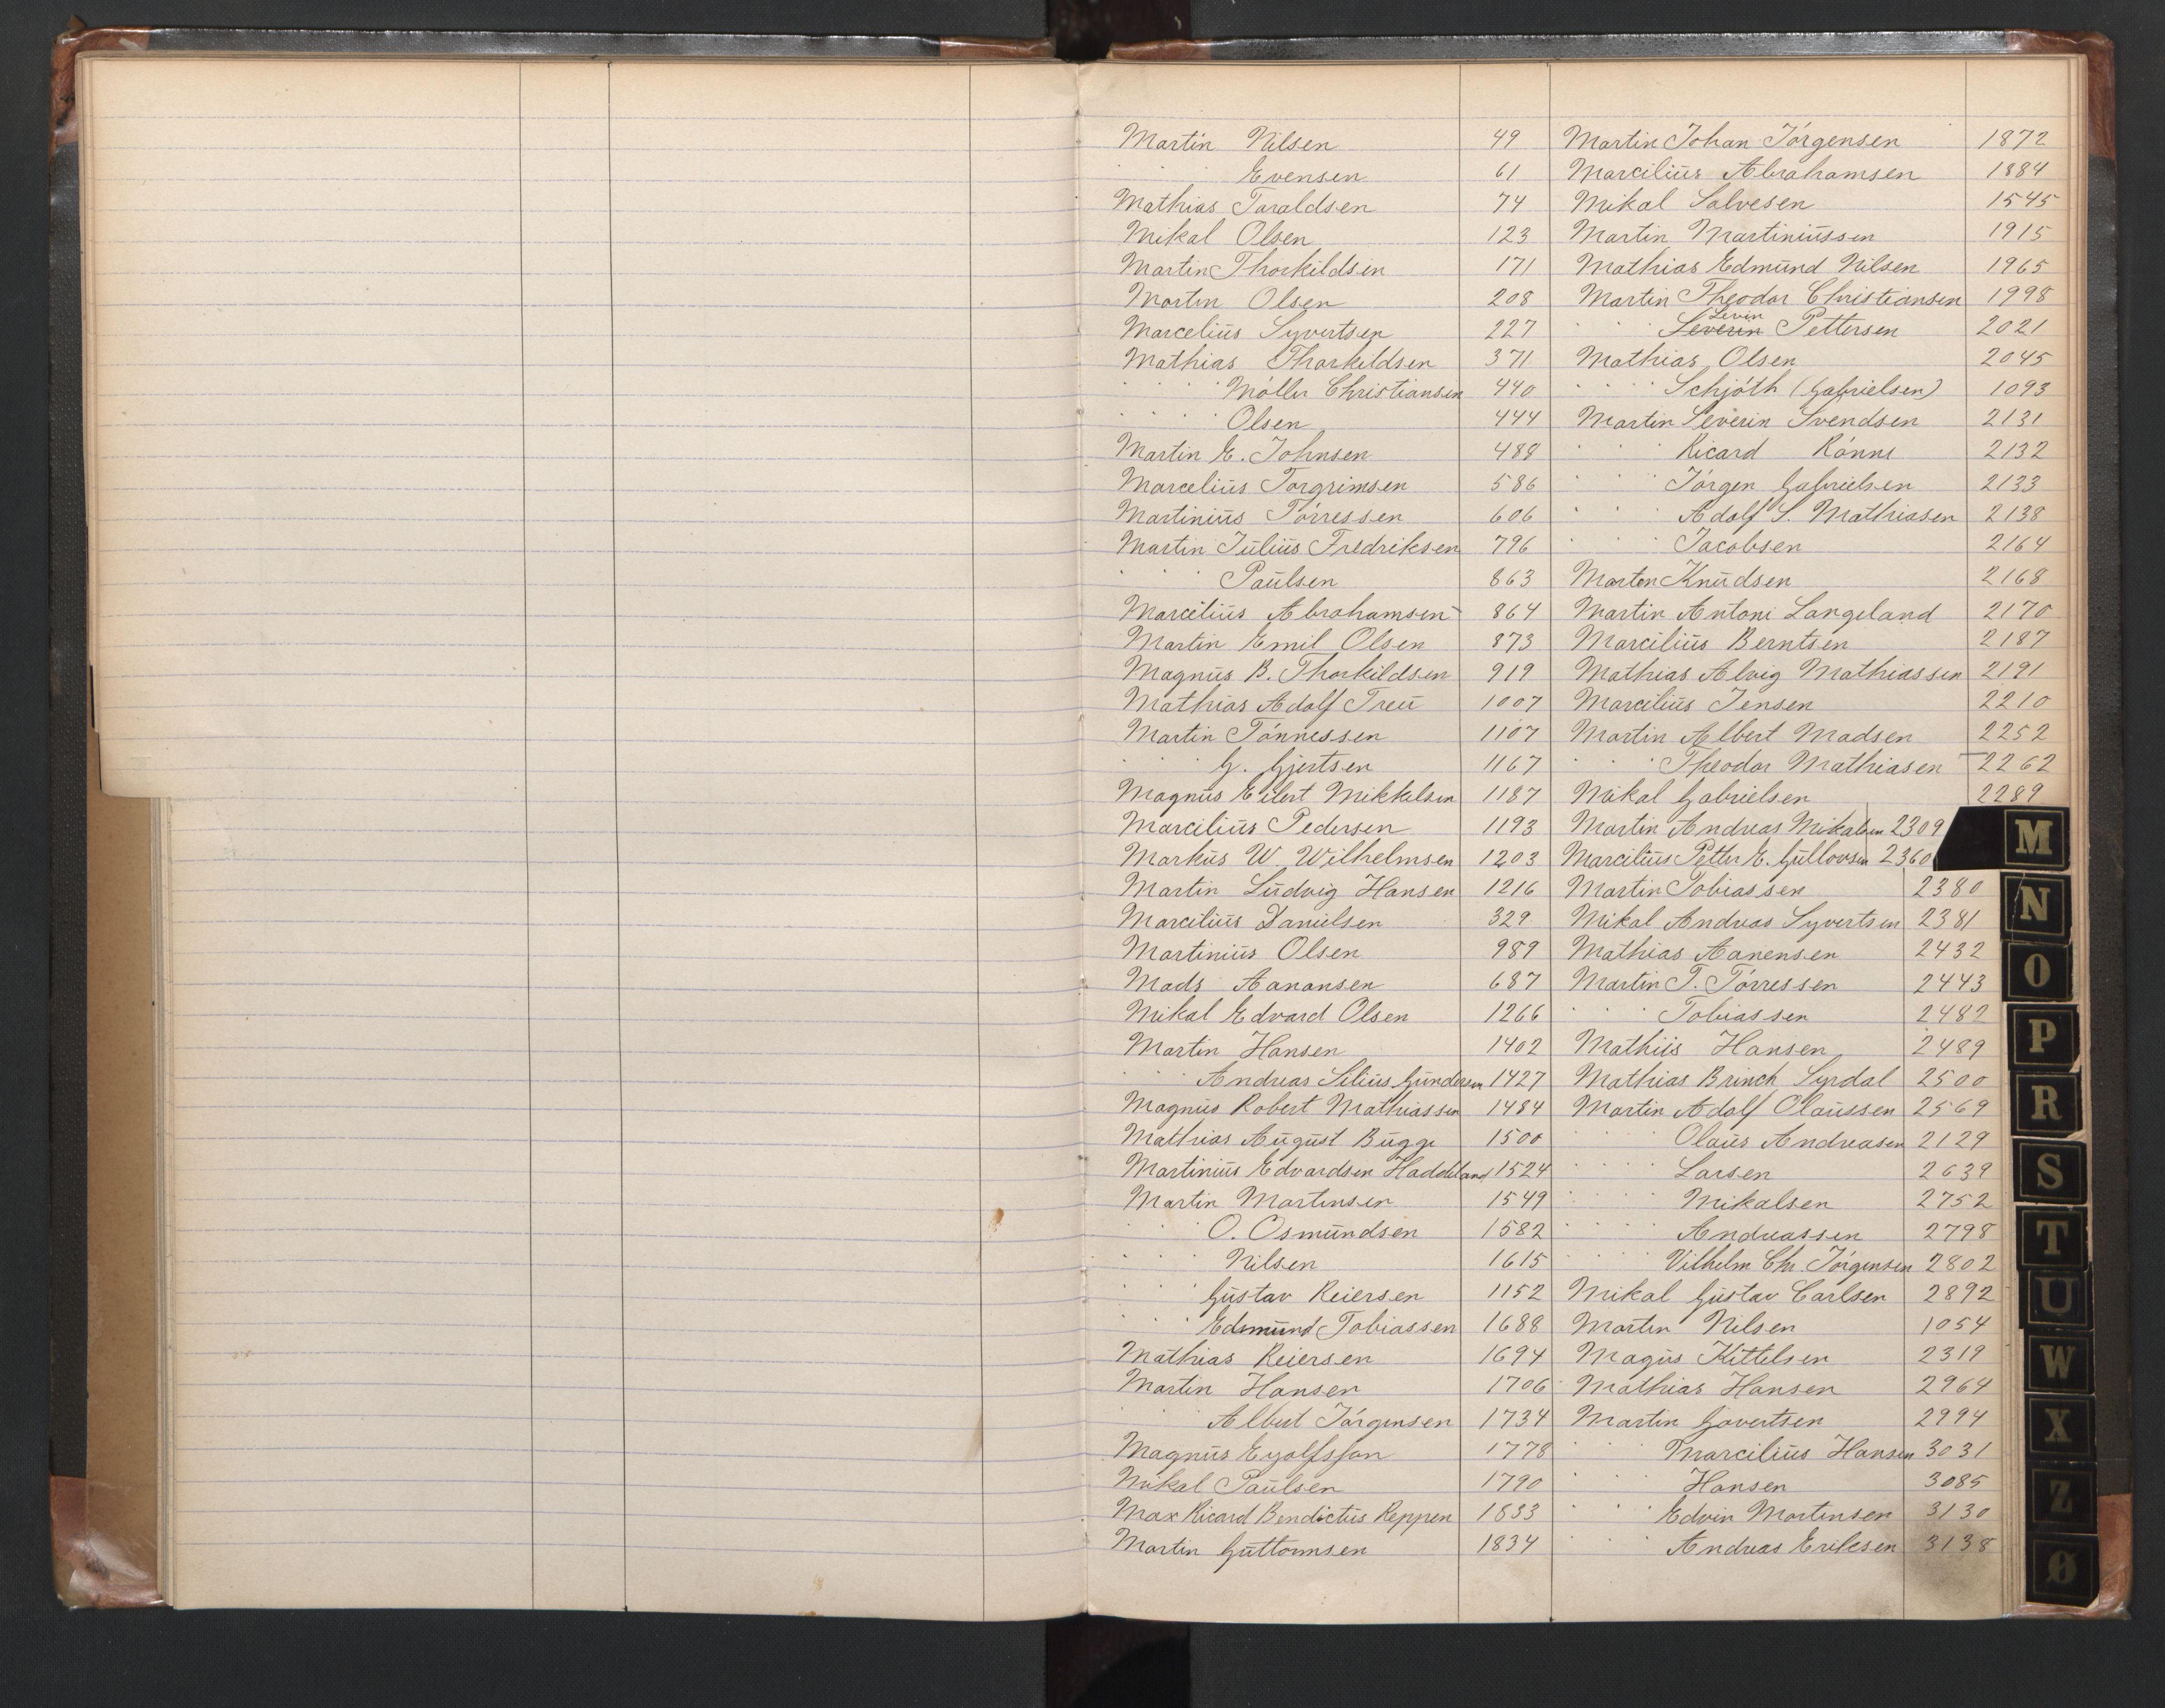 Martin Nilsen 49
" " Evensen 61
Mathias Taraldsen 74
Mikal Olsen 123
Martin Thorkildsen 171
Martin Olsen 208
Marcelius Syvertsen 227
Mathias Thorkildsen 371
" " " Möller Christiansen 440
" " " Olsen 444
Martin E. Johnsen 488
Marcelius Torgrimsen 586
Martinius Törressen 606
Martin Julius Fredriksen 796
" " Paulsen 863
Marcelius Abrahamsen 864
Martin Emil Olsen 873
Magnus B. Thorkildsen 919
Mathias Adolf Treu 1007
Martin Tönnessen 1107
" " G. Gjertsen 1167
Magnus Eilert Mikkelsen 1187
Marcilius Pedersen 1193
Markus W. Wilhelmsen 1203
Martin Ludvig Hansen 1216
Marcilius Danielsen 329
Martinius Olsen 989
Mads Aanansen 687
Mikal Edvard Olsen 1266
Martin Hansen 1402
" " Andreas Silius Gundersen 1427
Magnus Robert Mathiassen 1484
Mathias August Bugge 1500
Martinius Edvardsen Haddeland 1524
Martin Martinsen 1549
" " O. Osmundsen 1582
" " Nilsen 1615
" " Gustav Reiersen 1152
" " Edmund Tobiassen 1688
Mathias Reiersen 1694
Martin Hansen 1706
" " Albert Jörgensen 1734
Magnus Eyolfsson 1778
Mikal Paulsen 1790
Max Ricard Bendictus Reppen 1833
Martin Guttormsen 1834
Martin Johan Jörgensen 1872
Marcilius Abrahamsen 1884
Mikal Salvesen 1545
Martin Martiniussen 1915
Mathias Edmund Nilsen 1965
Martin Theodor Christiansen 1998
Levin
" " Severin Pettersen 2021
Mathias Olsen 2045
" " Schjöth (Gabrielsen) 1093
Martin Severin Svendsen 2131
" " Ricard Rönne 2132
" " Jörgen Gabrielsen 2133
" " Adolf S. Mathiasen 2138
" " Jacobsen 2164
Morten Knudsen 2168
Martin Antoni Langeland 2170
Marcilius Berntsen 2187
Mathias Alvig Mathiassen 2191
Marcilius Jensen 2210
Martin Albert Madsen 2252
" " Theodor Mathiasen 2262
Mikal Gabrielsen 2289
Martin Andreas Mikalsen 2309
Marcilius Petter E. Gullovsen 2360
Martin Tobiassen 2380
Mikal Andreas Syvertsen 2381
Mathias Aanensen 2432
Martin T. Törressen 2443
" " Tobiassen 2482
Mathiis Hansen 2489
Mathias Brinch Syrdal 2500
Martin Adolf Olaussen 2569
" " Olaus Andreasen 2129
" " Larsen 2639
" " Mikalsen 2752
" " Andreassen 2798
" " Vilhelm Chr Jörgensen 2802
Mikal Gustav Carlsen 2892
Martin Nilsen 1054
Magus Kittelsen 2319
Mathias Hansen 2964
Martin Govertsen 2994
" " Marcilius Hansen 3031
" " Hansen 3085
" " Edvin Martinsen 3130
" " Andreas Eriksen 3138
M
N
O
P
R
S
T
U
W
X
Z
Ø